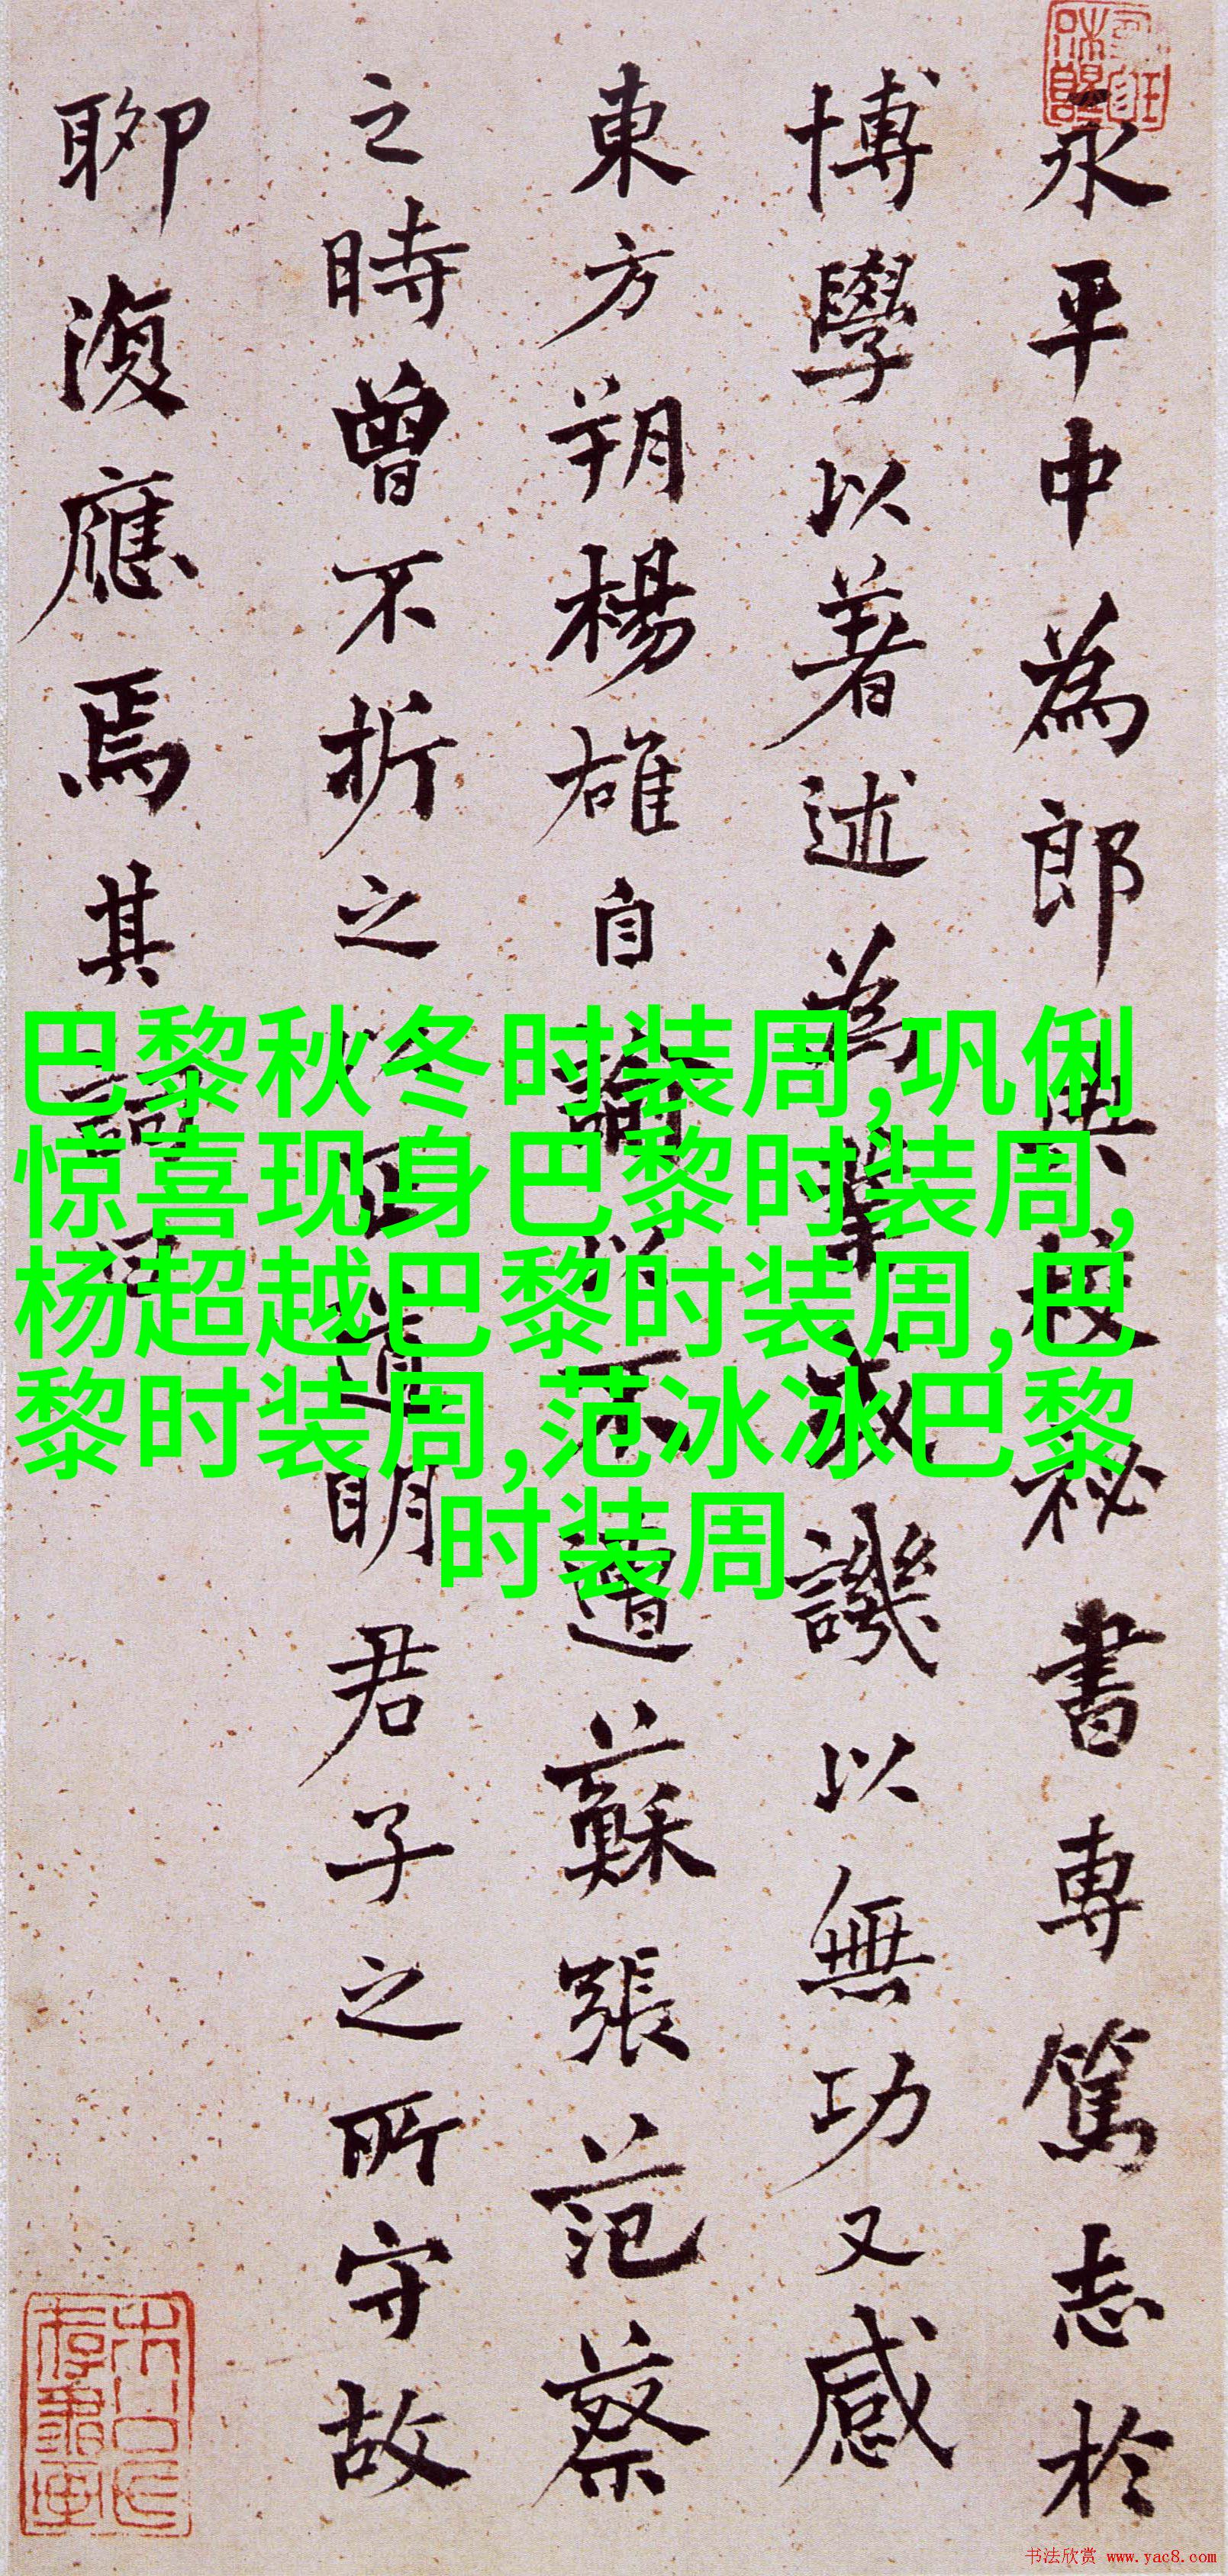 永平中為郎典校祕書專篤志於
博學以著述為業或譏以無功又感
東方朔楊雄自諭以不遭蘇張范蔡
之時曾不折之以正道明君子之所守故
聊復應焉其詞曰
巴黎秋冬时装周,巩俐
惊喜现身巴黎时装周,
杨超越巴黎时装周,巴
黎时装周,范冰冰巴黎
时装周
书法欣赏 www.yac8.com